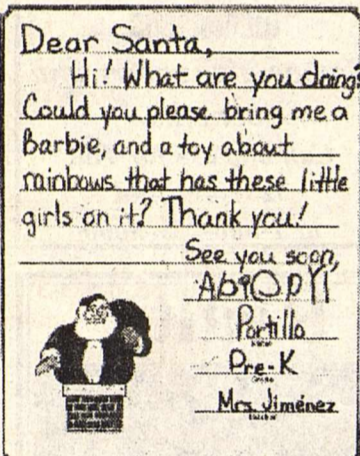 Dear Santa,
Hi! What are you doing?
Could you please bring me a
Barbie, and a toy about
rainbows that has these little
girls on it? Thank you!
See you soon,
Portillo
Pre-K
Mrs. Jiménez